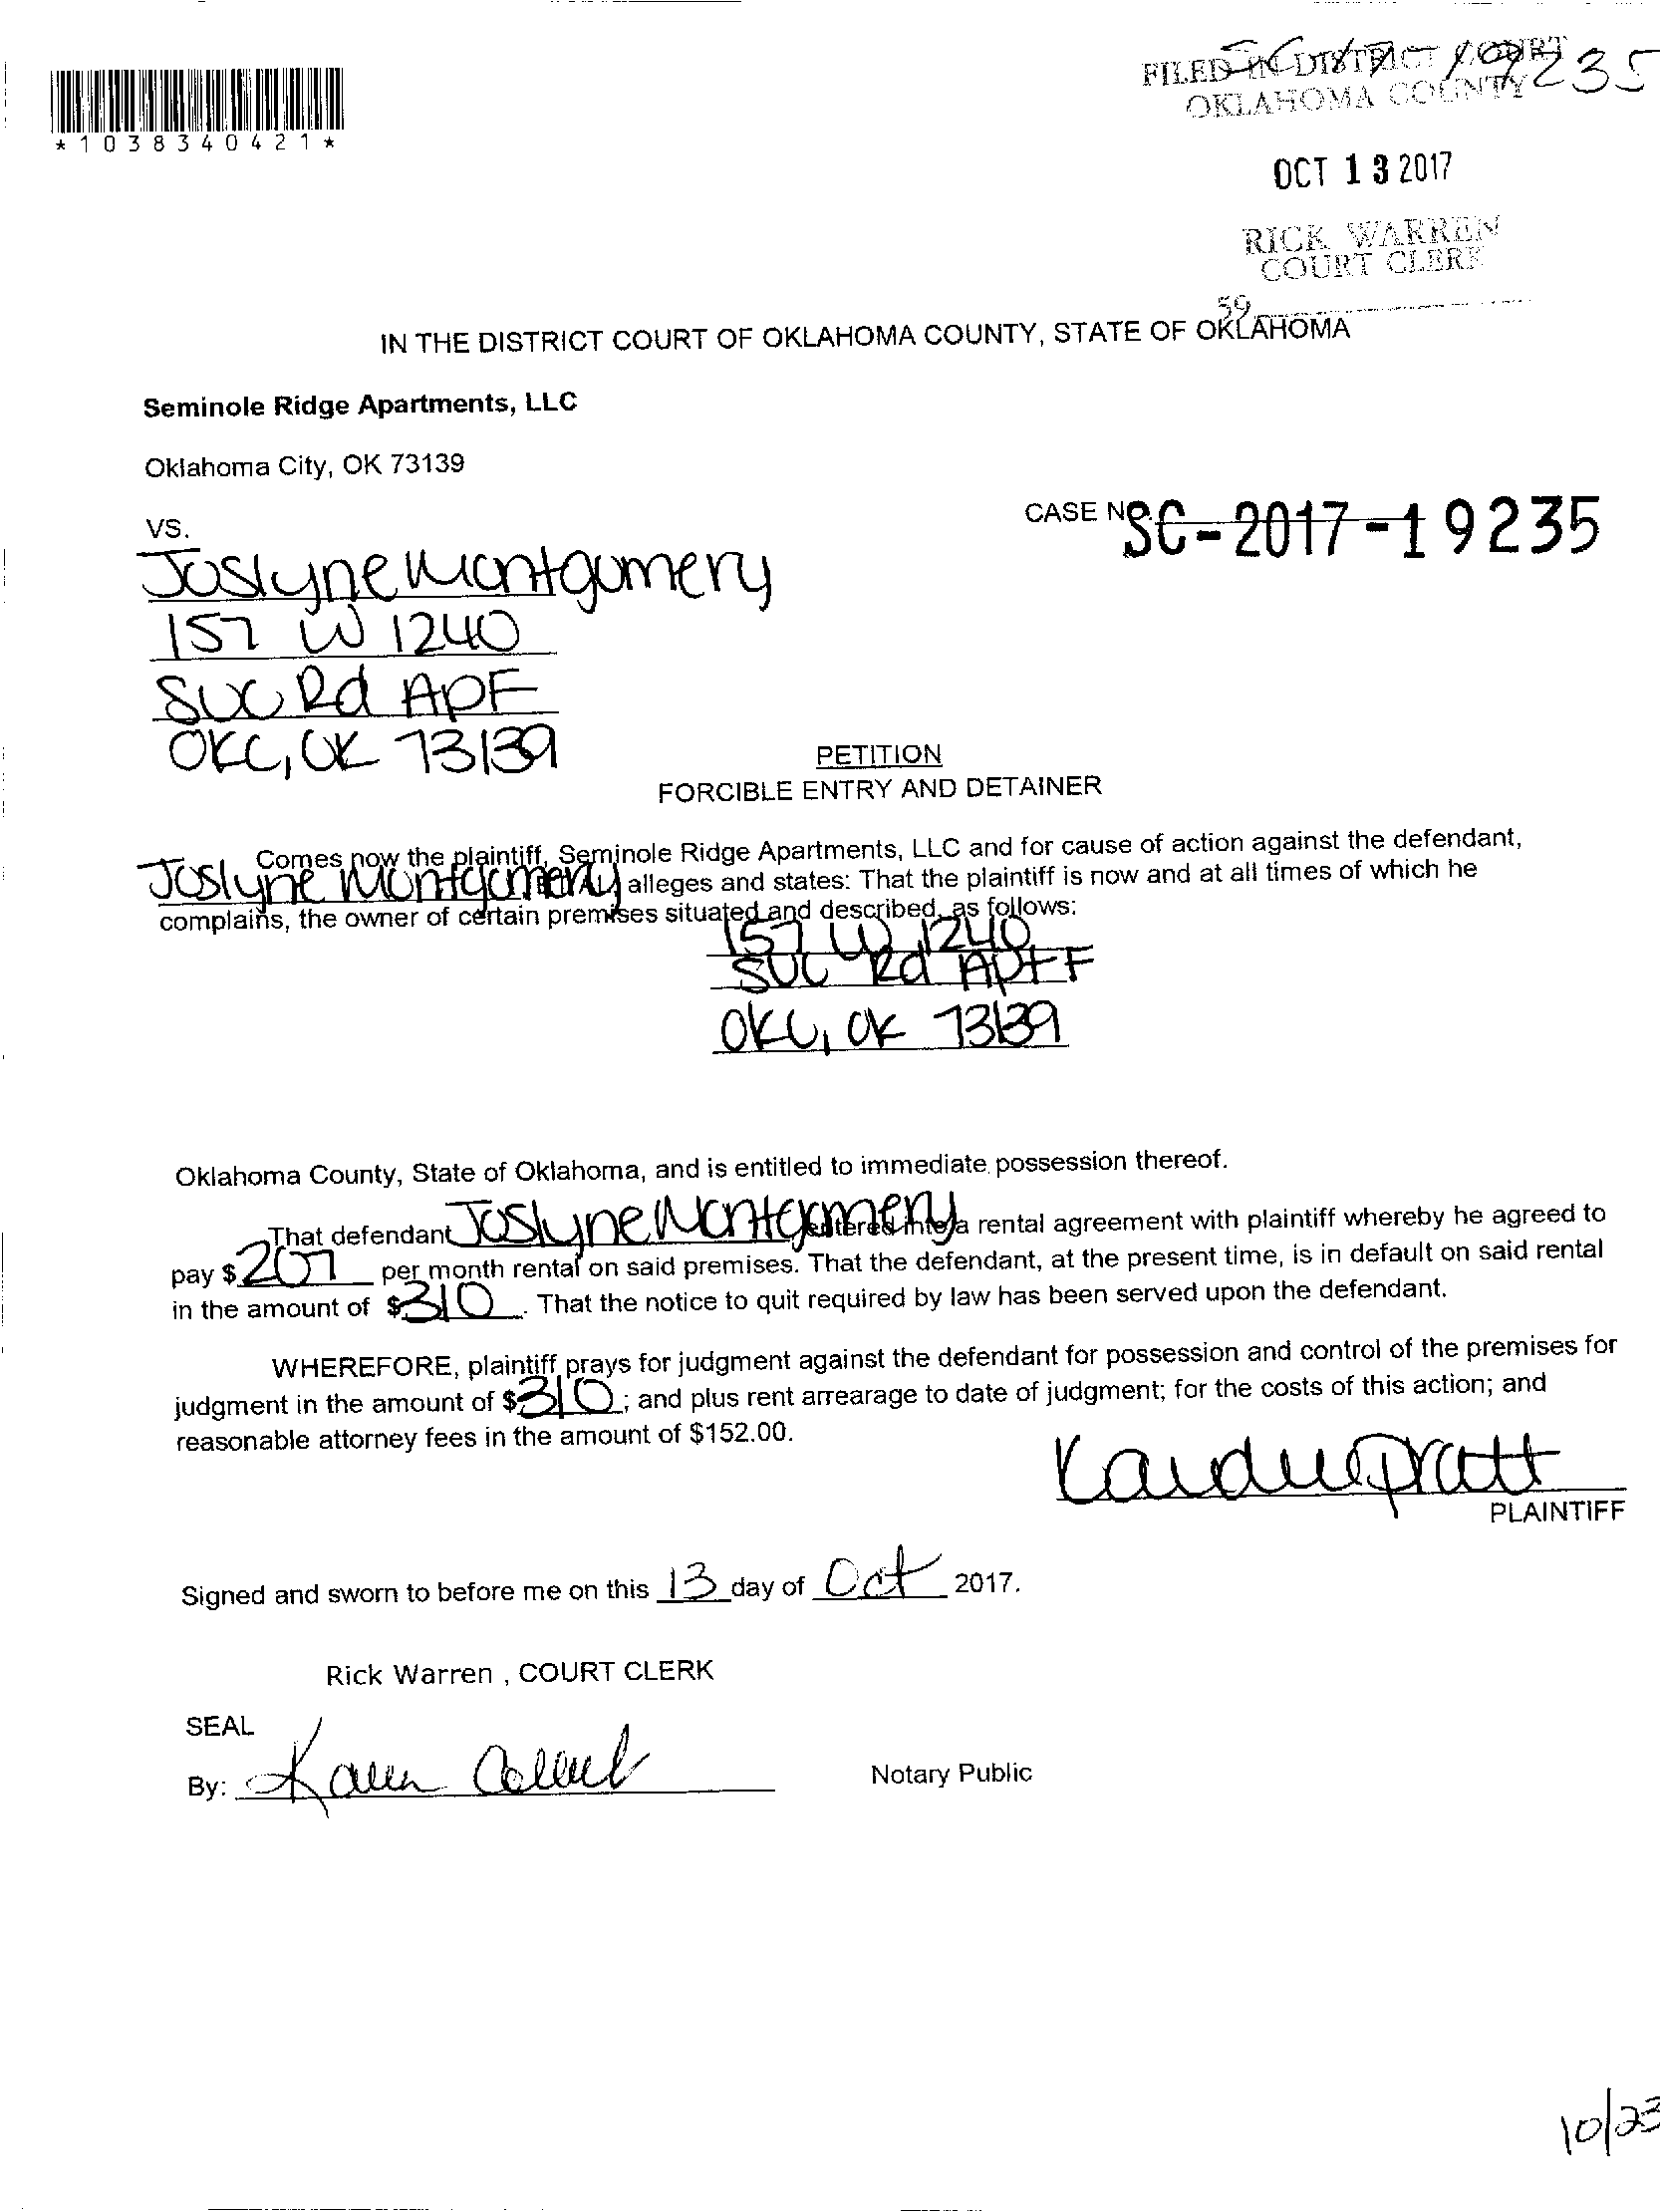 SC 17 19235
FILED IN DISTRICT COURT
OKLAHOMA COUNTY
*1038340421*
OCT 13 2017
RICK WARREN
COURT CLERK
59
IN THE DISTRICT COURT OF OKLAHOMA COUNTY, STATE OF OKLAHOMA
Seminole Ridge Apartments, LLC
Oklahoma City, OK 73139
CASE NO. SC-2017-19235
VS.
Joslyne Montgomery
157 W 1240
Rd Apt F
OKC, OK 73139
PETITION
FORCIBLE ENTRY AND DETAINER
Comes now the plaintiff, Seminole Ridge Apartments, LLC and for cause of action against the defendant,
Joslyne Montgomery alleges and states: That the plaintiff is now and at all times of which he
complains, the owner of certain premises situated and described, as follows:
157 W 1240
Rd Apt F
OKC, OK 73139
Oklahoma County, State of Oklahoma, and is entitled to immediate possession thereof.
That defendant Joslyne Montgomery entered into a rental agreement with plaintiff whereby he agreed to
pay $ 207 per month rental on said premises. That the defendant, at the present time, is in default on said rental
in the amount of $310. That the notice to quit required by law has been served upon the defendant.
WHEREFORE, plaintiff prays for judgment against the defendant for possession and control of the premises for
judgment in the amount of $310; and plus rent arrearage to date of judgment; for the costs of this action; and
reasonable attorney fees in the amount of $152.00.
Pratt
PLAINTIFF
Signed and sworn to before me on this 13 day of Oct 2017.
Rick Warren , COURT CLERK
SEAL
By: Karen
Notary Public
10/23